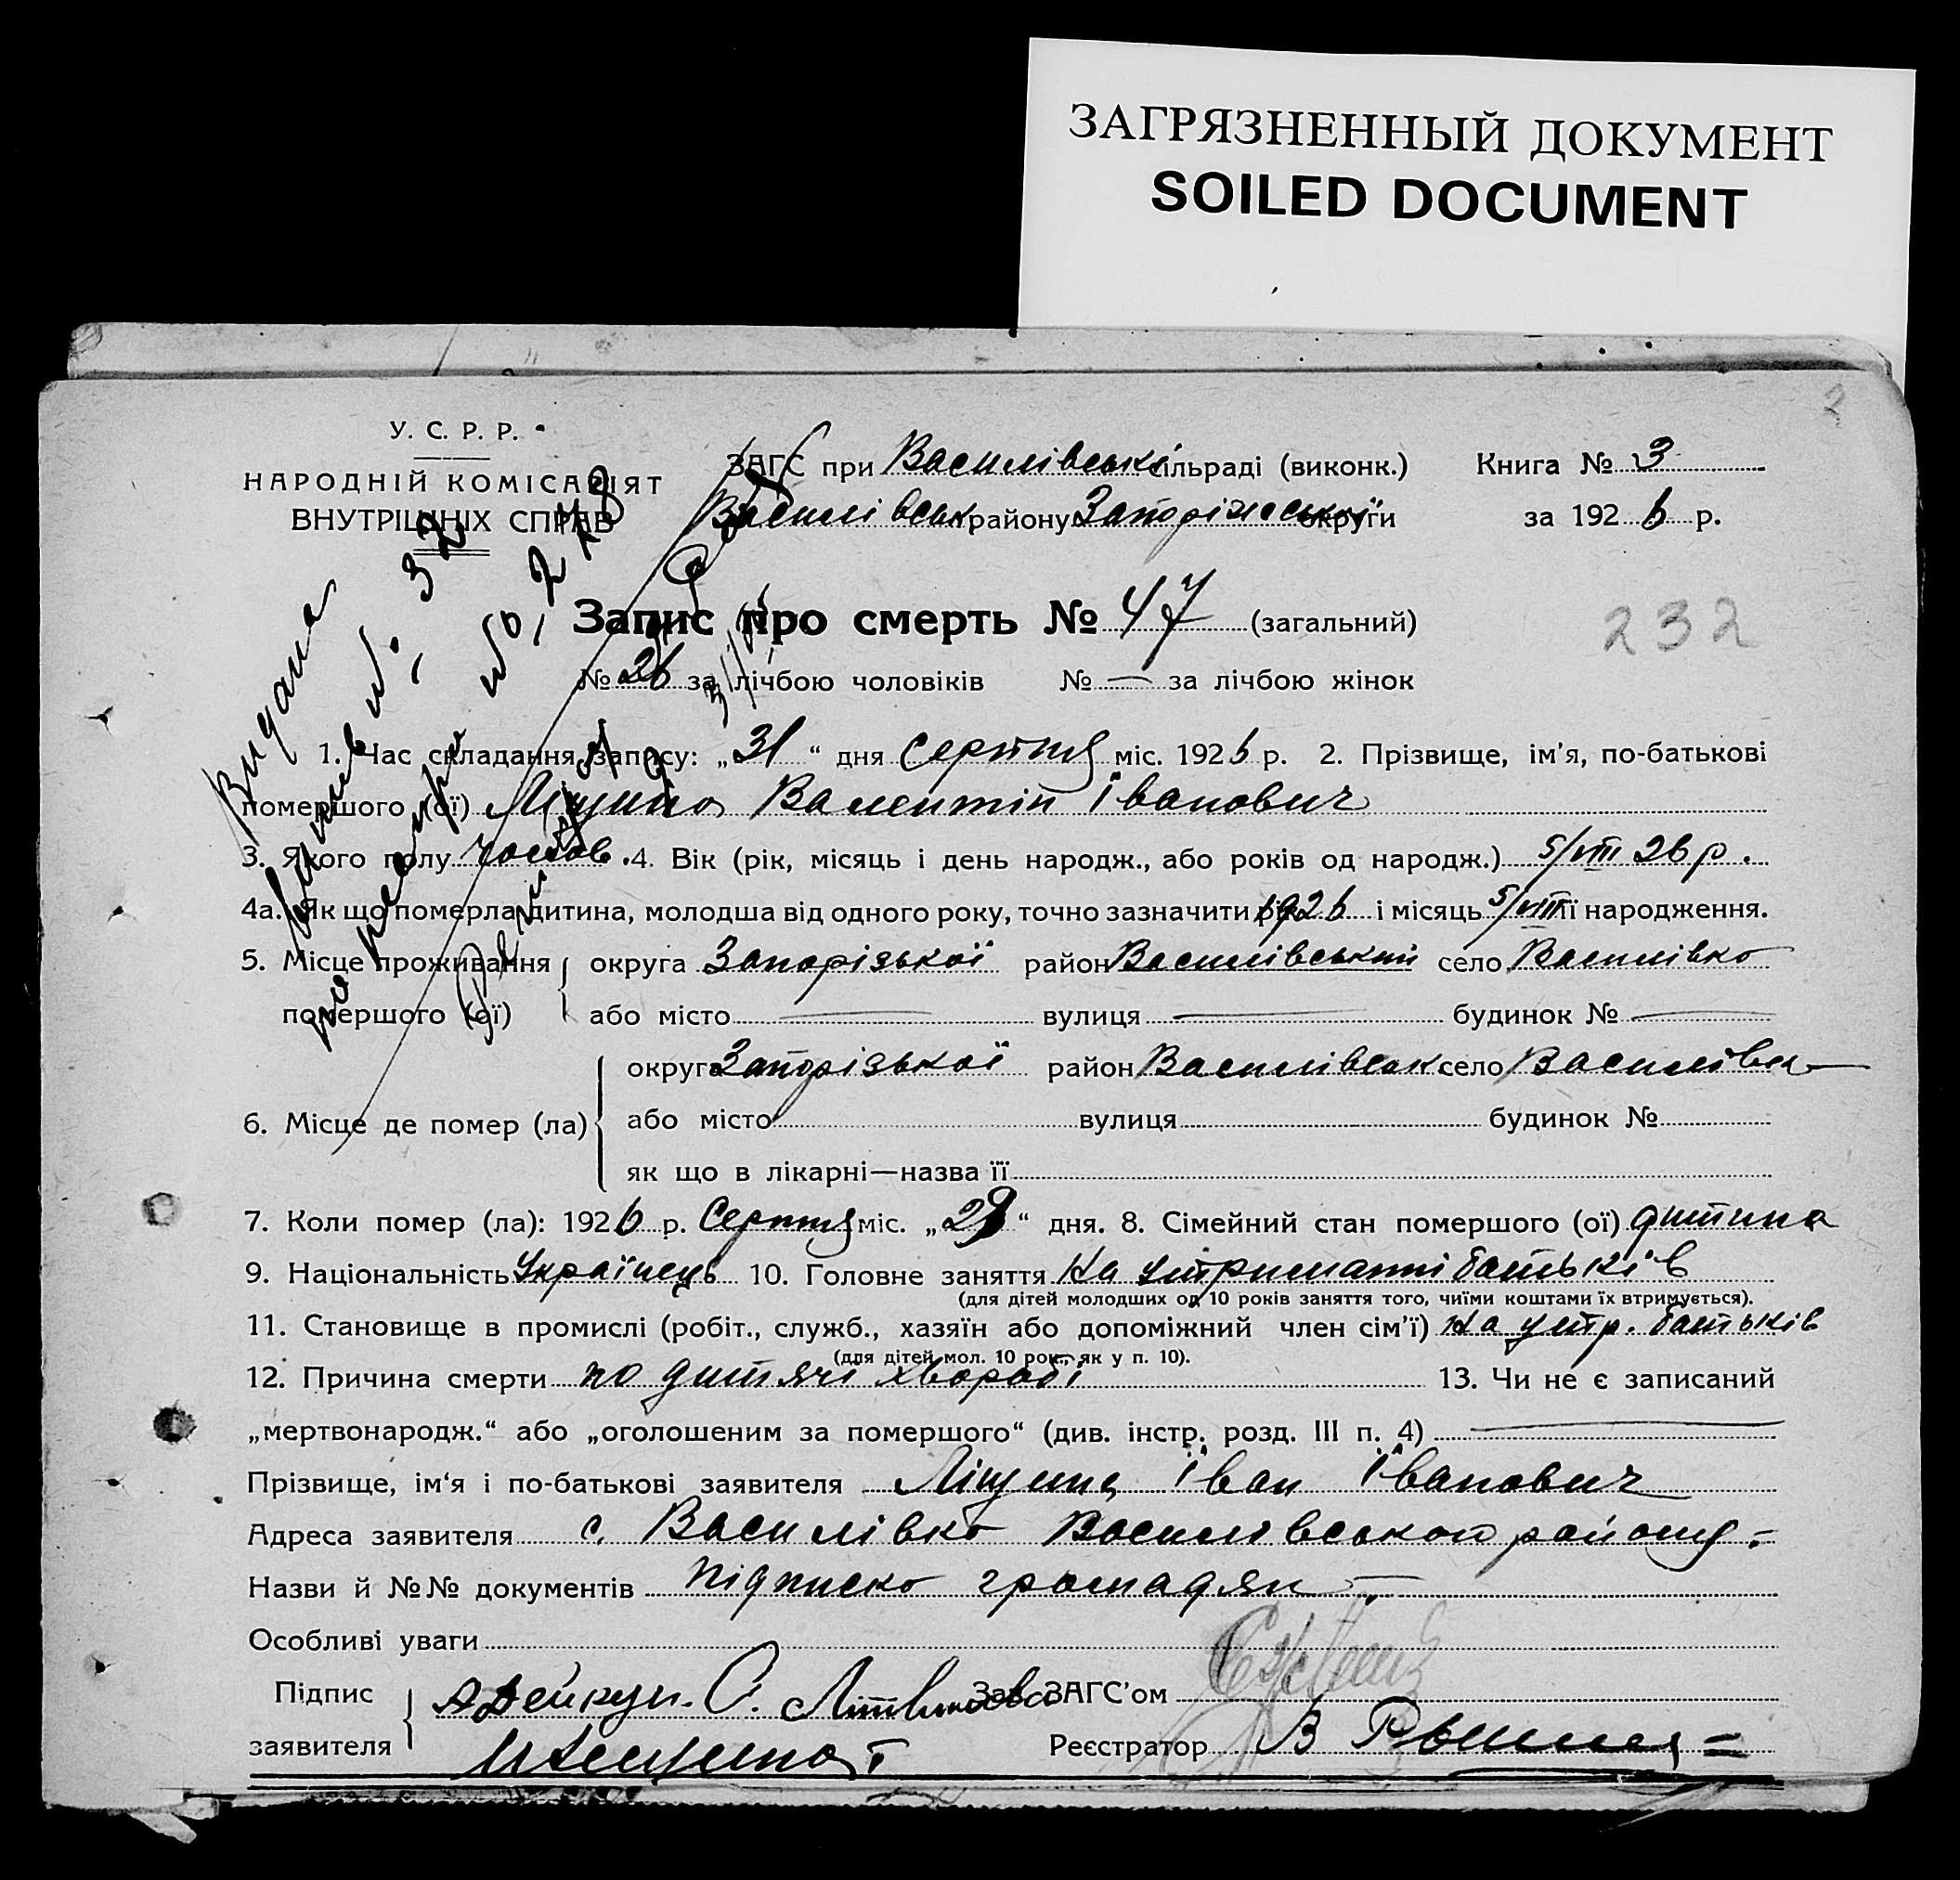 ЗАГРЯЗНЕННЫЙ ДОКУМЕНТ
SOILED DOCUMENT
2
У. С. Р. Р.
НАРОДНІЙ КОМІСАРІЯТ
ВНУТРІШНІХ СПРАВ
ЗАГС при Василівські сільраді (виконк.) Книга № 3
Василівськ району Запоріжської округи за 1926 р.
Запис про смерть № 47 (загальний)
232
№ 26 за лічбою чоловіків № — за лічбою жінок
Видана
1. Час складання запису: „31“ дня Серпня міс. 1926 р. 2. Прізвище, ім'я, по-батькові
помершого (ої) Ліщина Валентін Іванович
3. Якого полу чолов. 4. Вік (рік, місяць і день народж., або років од народж.) 5/VIII 26 р.
4а. Як що померла дитина, молодша від одного року, точно зазначити рік 1926 і місяць 5/VIII її народження.
5. Місце проживання помершого (ої) округа Запорізької район Василівський село Василівка
або місто — вулиця — будинок № —
6. Місце де помер (ла) округа Запорізької район Василівськ село Василівка
або місто вулиця будинок №
як що в лікарні—назва її
7. Коли помер (ла): 1926 р. Серпня міс. „29“ дня. 8. Сімейний стан помершого (ої) дитина
9. Національність Українець 10. Головне заняття На утриманні батьків
(для дітей молодших од 10 років заняття того, чиїми коштами їх втримується).
11. Становище в промислі (робіт., служб., хазяїн або допоміжний член сім'ї) На утр. батьків
(для дітей мол. 10 рок., як у п. 10).
12. Причина смерти по дитячі хворобі 13. Чи не є записаний
„мертвонародж.“ або „оголошеним за помершого“ (див. інстр. розд. III п. 4) —
Прізвище, ім'я і по-батькові заявителя Ліщина Іван Іванович
Адреса заявителя с. Василівка Василівського району
Назви й №№ документів підписка громадян —
Особливі уваги
Підпис заявителя Зав. ЗАГС'ом
Реєстратор В